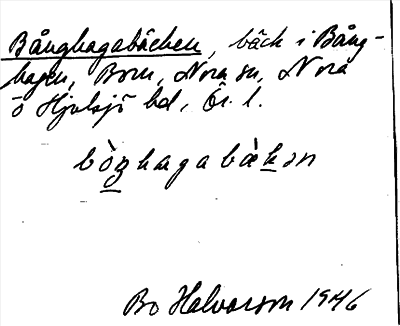 Bånghagabäcken, bäck i Bång-
hagen, Born, Nora sn, Nora
o Hjulsjö bd, Ör. l.
bòŋhagabàkən
Bo Halvarson 1946